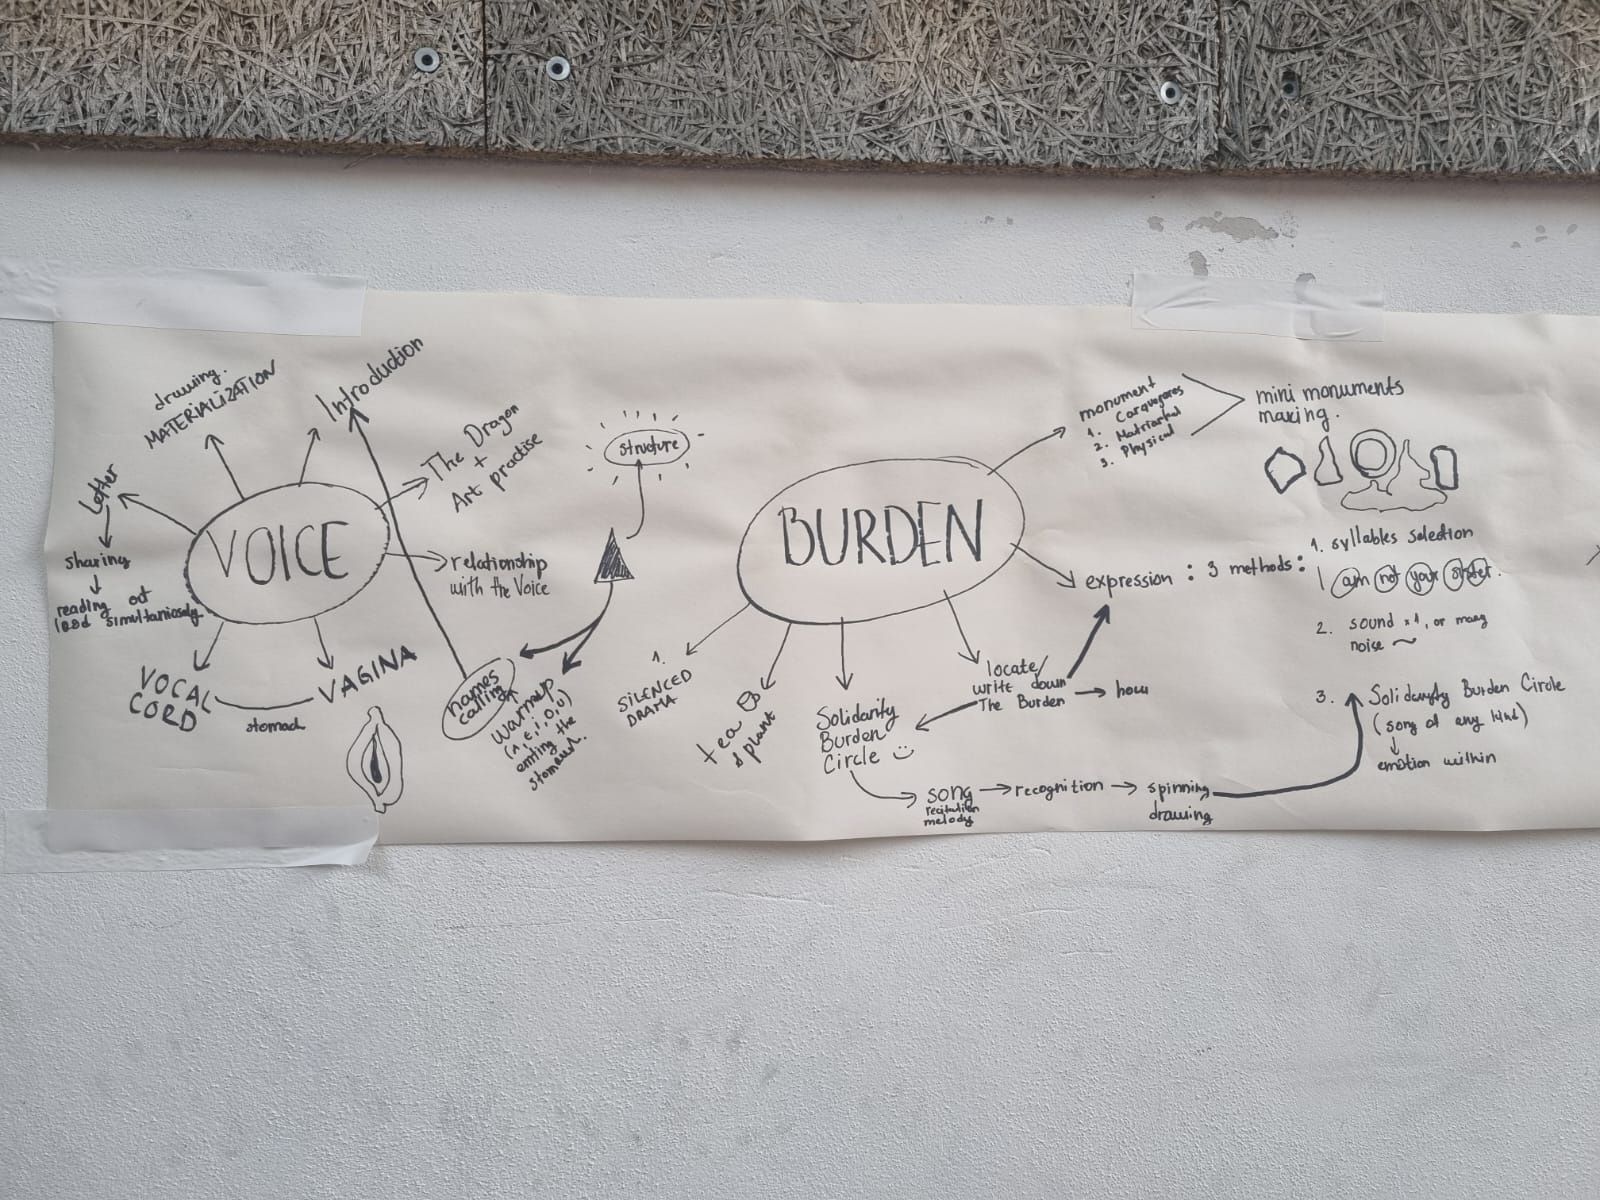 drawing.
MATERIALIZATION
Introduction
The Dragon
+
Art practise
Letter
sharing
reading out
loud simultaniosely
VOICE
relationship
with the Voice
VOCAL
CORD
stomach
VAGINA
structure
names
calling
Warmup
(A, E, I, O, U)
emting the
stomach.
BURDEN
1.
SILENCED
DRAMA
tea
& plant
Solidarity
Burden
Circle
song
recitation
melody
recognition
spinning
drawing
locate/
write down
The Burden
how
monument
1.
2. Matriarhal
3. Physical
mini monuments
making.
expression : 3 methods:
1. syllables selection
I am not your sister.
2. sound x1, or many
noise ~
3. Solidarity Burden Circle
(song of any kind)
emotion within